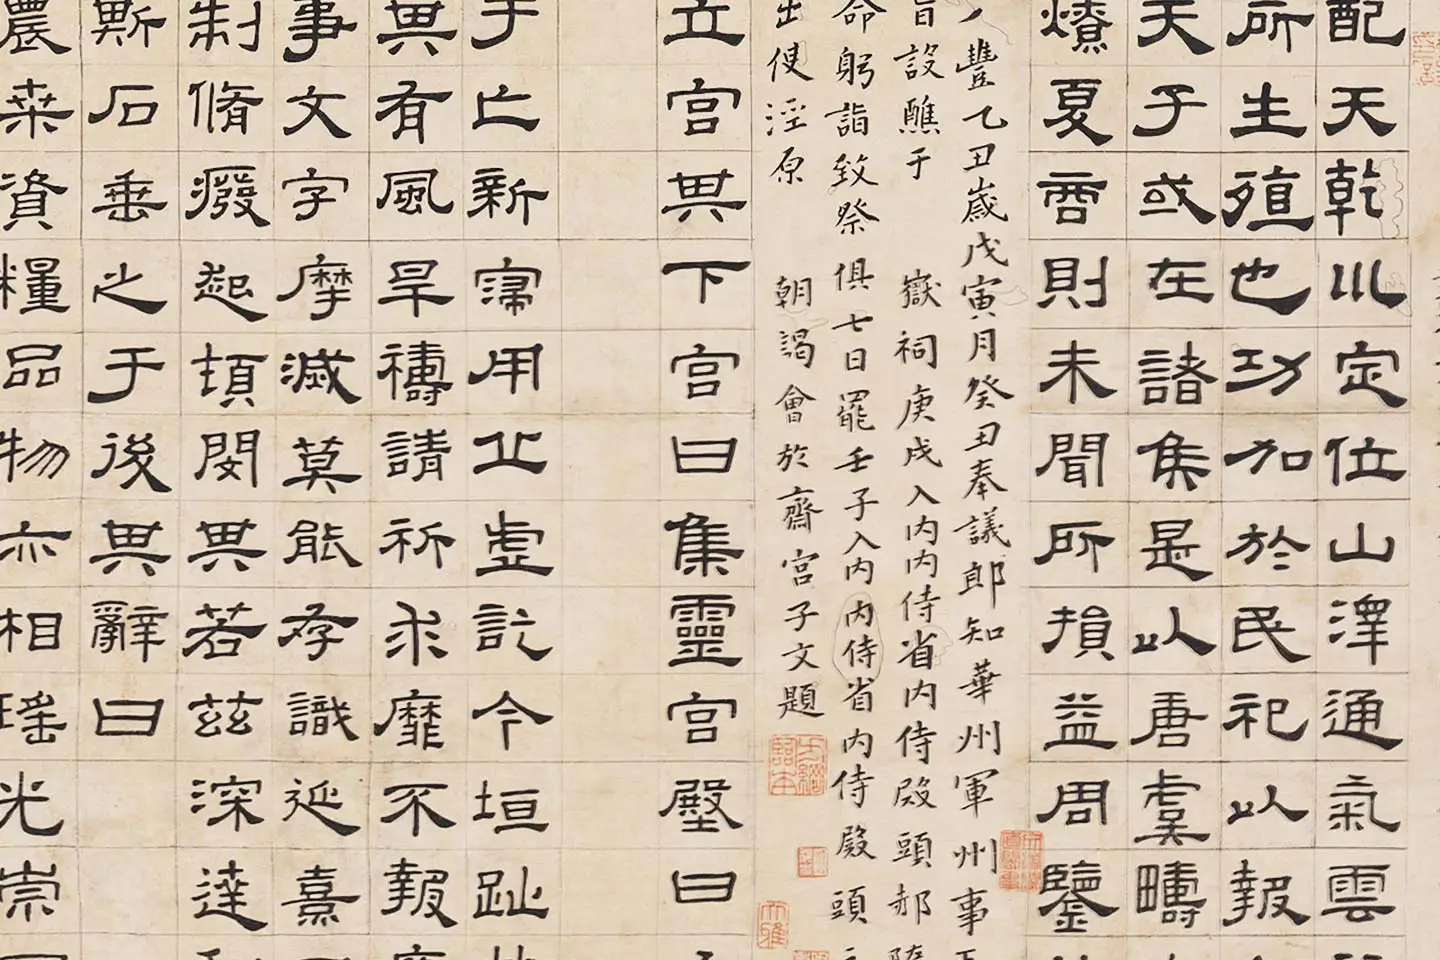 配天乾𡿦定位山澤通氣雲
所生殖也功加於民祀以報
天子或在諸侯是以唐虞疇
燎夏商則未聞所損益周鑒
豐乙丑歲戊寅月癸丑奉議郎知華州軍州事
旨設醮于嶽祠庚戌入內內侍省內侍殿頭郝
命躬詣致祭俱七日罷壬子入內內侍省內侍殿頭
出使涇原朝謁會於齋宮子文題
立宮其下宮曰集靈宮壂曰
于亡新寖用丘虛訖今垣趾
其有風旱禱請祈求靡不報
事文字摩滅莫能存識延熹
制脩癈起頓閔其若茲深達
斲石垂之于後其辭曰
農桒資糧品物亦相瑤光崇